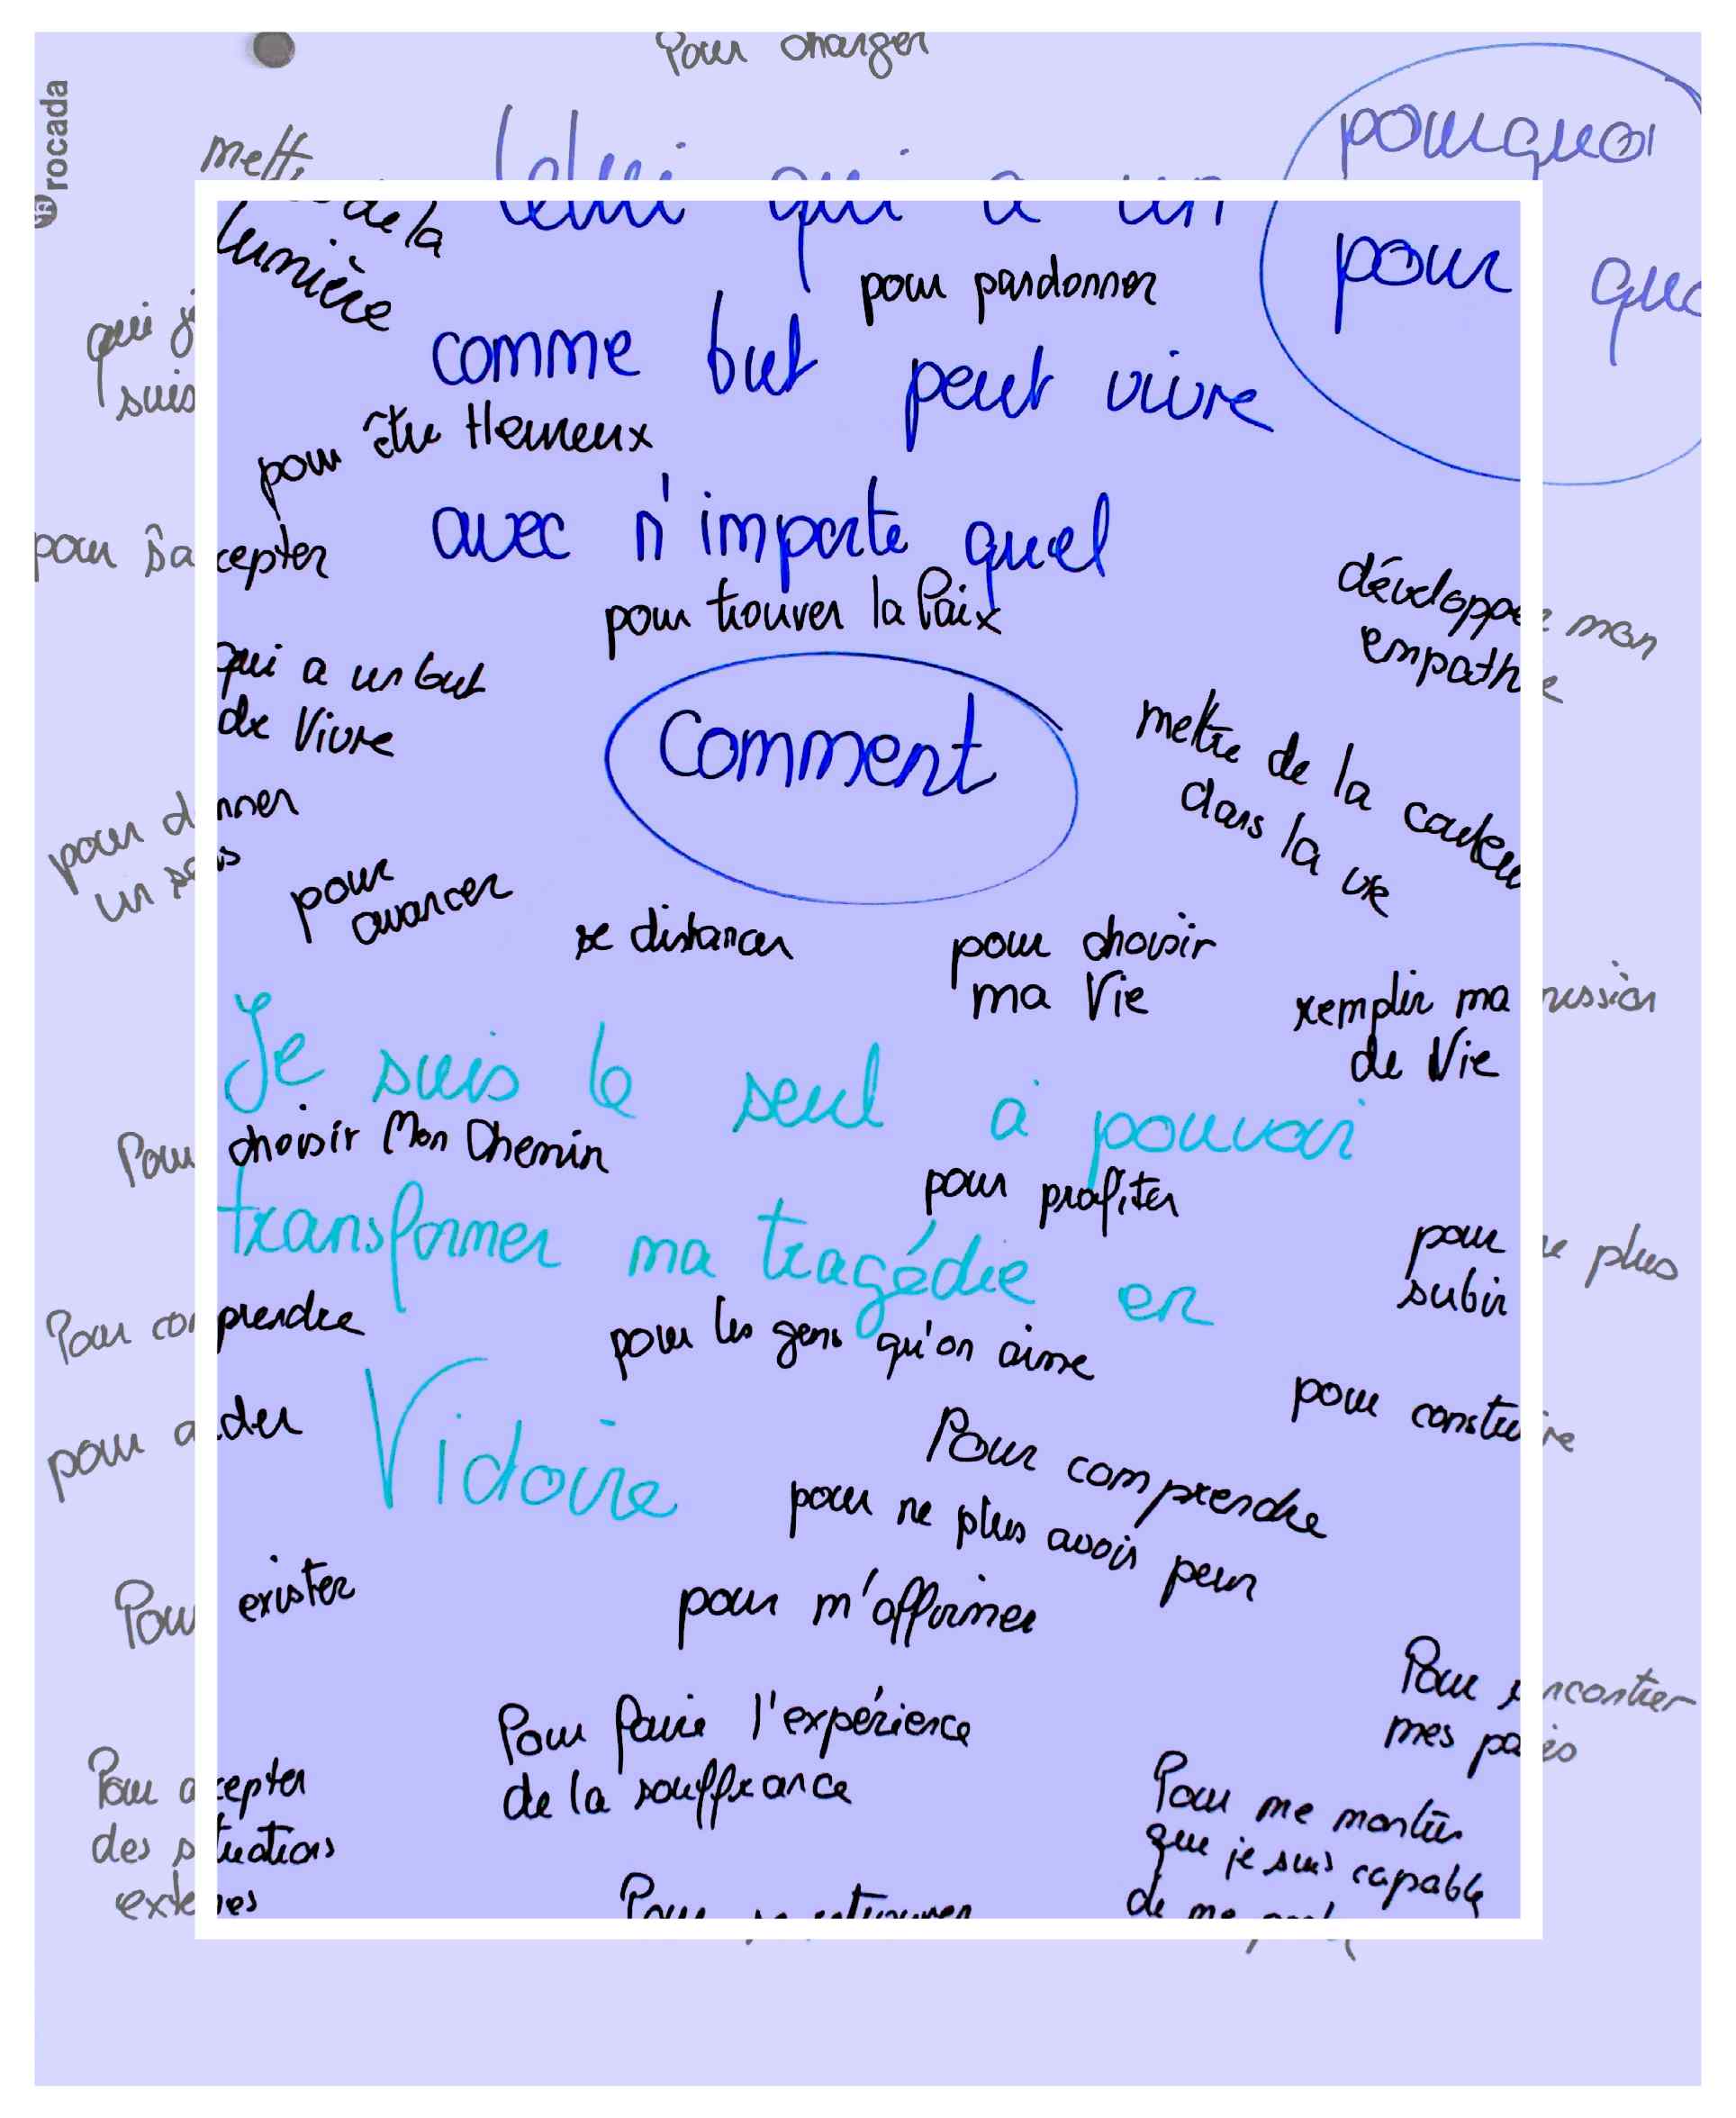 Pour changer
rocada
pourquoi
Celui qui a un
de la
lumière
pour pardonner
pour
comme but peut vivre
pour être Heureux
avec n'importe quel
pour trouver la Paix
développer mon
empathie
qui a un but
de Vivre
Comment
mettre de la couleur
dans la vie
pour
avancer
se distancer
pour choisir
ma Vie
remplir ma
de Vie
Je suis le seul à pouvoir
choisir Mon Chemin
pour profiter
transformer ma tragédie en
pour plus
subir
Pour comprendre
pour les gens qu'on aime
pour construire
pour aider
Victoire
Pour comprendre
pour ne plus avoir peur
Pour exister
pour m'affirmer
Pour rencontrer
mes
Pour faire l'expérience
de la souffrance
Pour accepter
des situations
externes
Pour me montrer
que je suis capable
de me
Pour